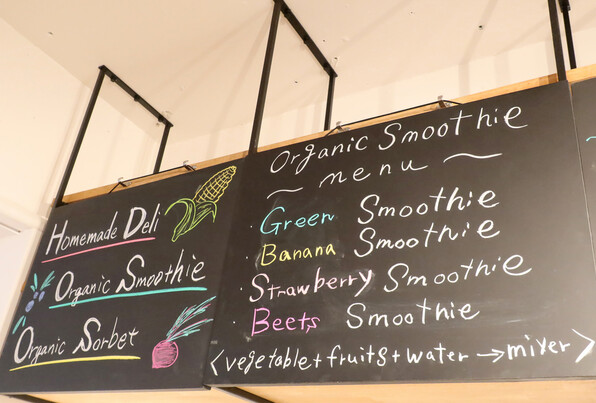 Homemade Deli
Organic Smoothie
Organic Sorbet
Organic Smoothie
~ menu ~
· Green Smoothie
· Banana Smoothie
· Strawberry Smoothie
· Beets Smoothie
<vegetable+fruits+water→mixer>